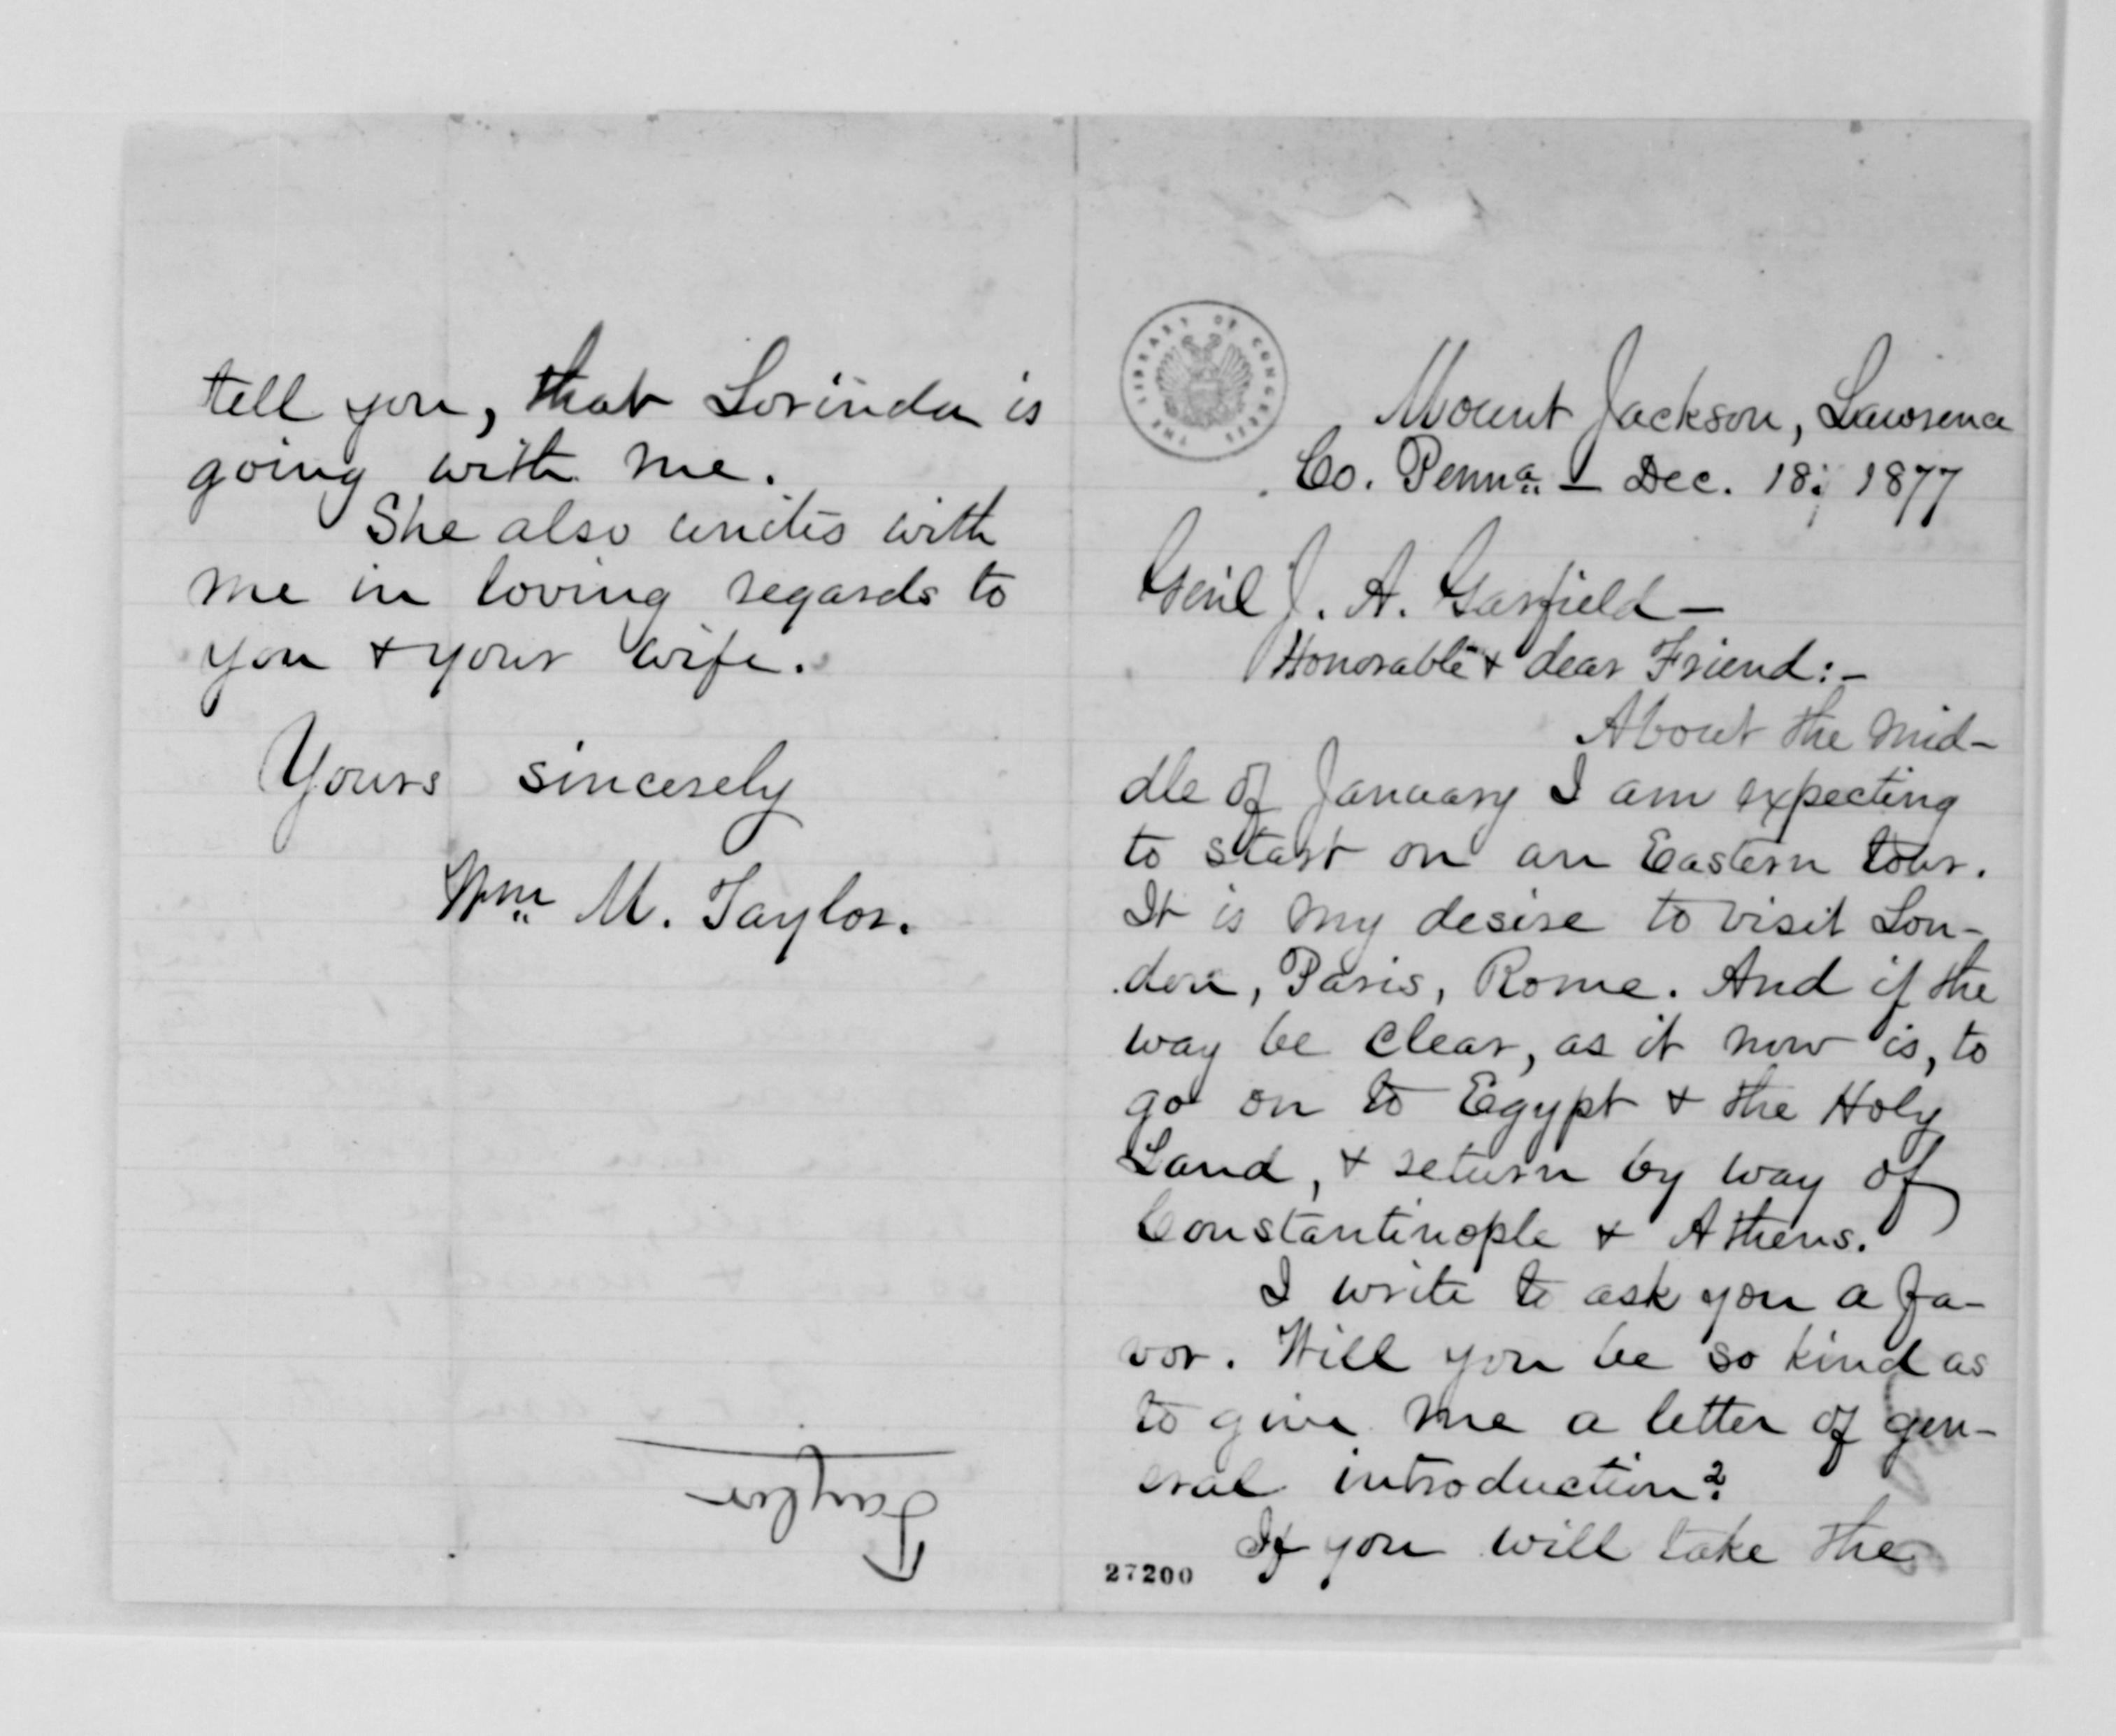 Mount Jackson, Lawrence
Co. Penna. — Dec. 18, 1877
Gen'l J. A. Garfield —
Honorable & dear Friend:—
About the mid-
dle of January I am expecting
to start on an Eastern tour.
It is my desire to visit Lon-
don, Paris, Rome. And if the
way be clear, as it now is, to
go on to Egypt & the Holy
Land, & return by way of
Constantinople & Athens.
I write to ask you a fa-
vor. Will you be so kind as
to give me a letter of gen-
eral introduction?
If you will take the
27200
THE LIBRARY OF CONGRESS
tell you, that Lorinda is
going with me.
She also unites with
me in loving regards to
you & your wife.
Yours sincerely
Wm. M. Taylor.
Taylor